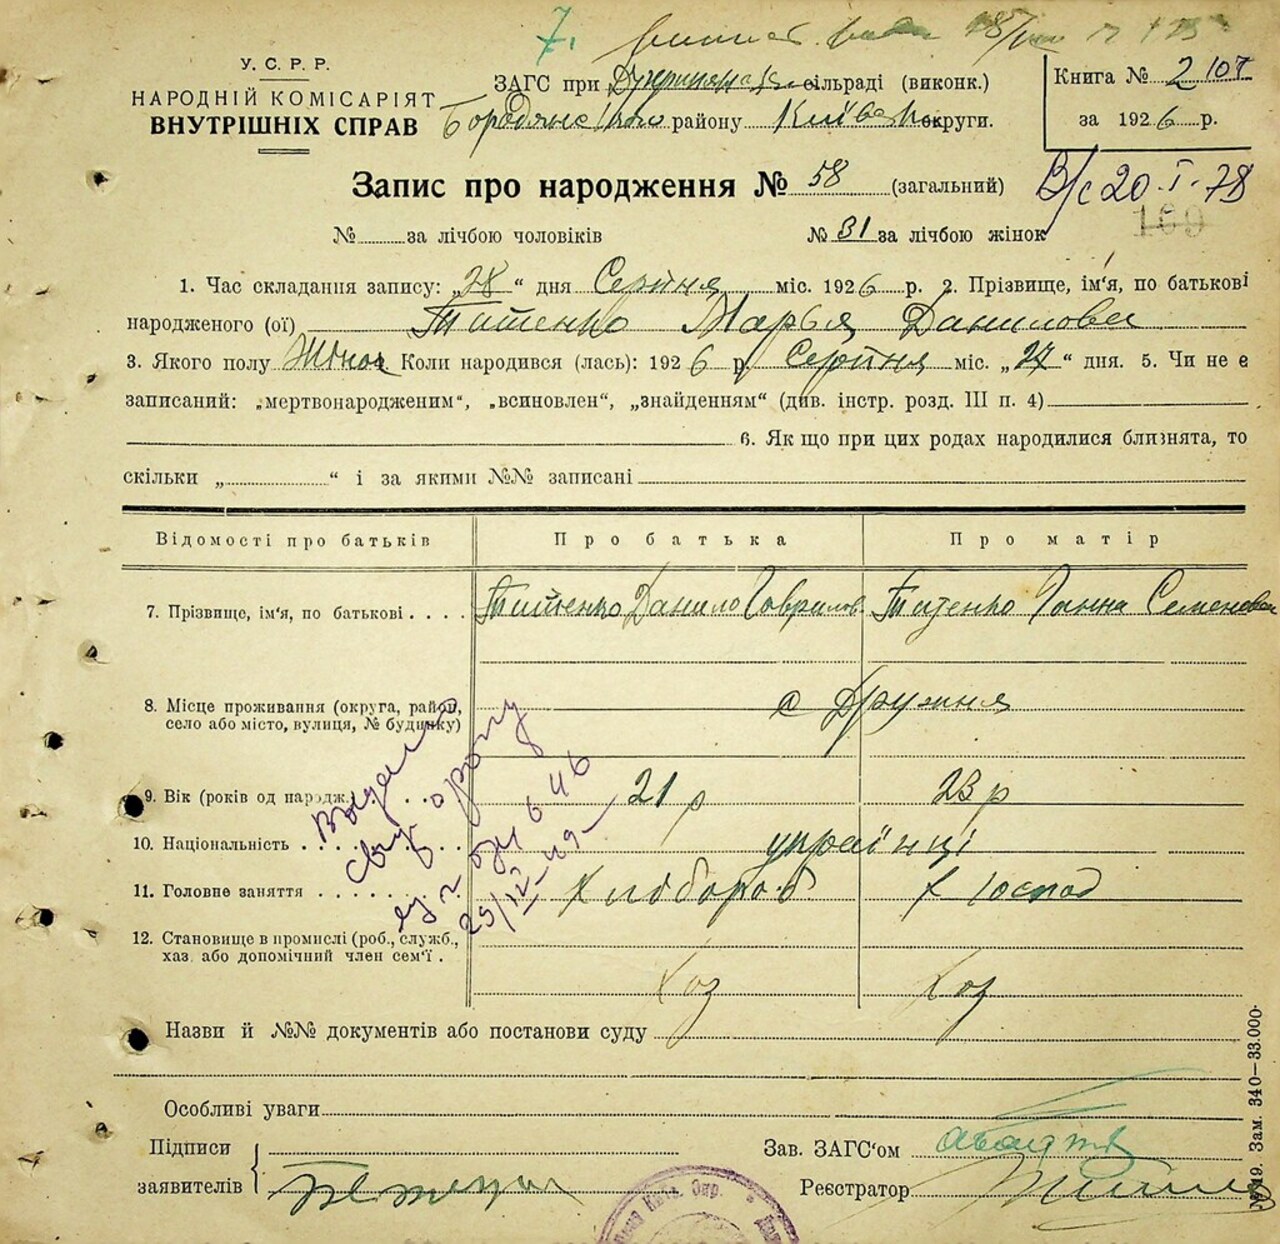 7.
У. С. Р. Р.
НАРОДНІЙ КОМІСАРІЯТ
ВНУТРІШНІХ СПРАВ
ЗАГС при сільраді (виконк.)
Бородянського району Київської округи.
Книга № 2 107
за 1926 р.
Запис про народження № 58 (загальний)
В/с 20.I.78
169
№ за лічбою чоловіків № 31 за лічбою жінок
1. Час складання запису: „28“ дня Серпня міс. 1926 р. 2. Прізвище, ім'я, по батькові
народженого (ої) Титенко Марья Данилова
3. Якого полу Жіноч 4. Коли народився (лась): 1926 р. Серпня міс. „27“ дня. 5. Чи не є
записаний: „мертвонародженим“, „всиновлен“, „знайденням“ (див. інстр. розд. III п. 4)
6. Як що при цих родах народилися близнята, то
скільки „ “ і за якими №№ записані
Відомості про батьків Про батька Про матір
7. Прізвище, ім'я, по батькові . . . . Титенко Данило Гаврилов Титенко Ганна Семенова
8. Місце проживання (округа, район,
село або місто, вулиця, № будинку) с Дружня
9. Вік (років од народж.) . . . 21 р 23 р
10. Національність . . . українці
11. Головне заняття . . . Хлібороб господ
12. Становище в промислі (роб., служб.,
хаз. або допомічний член сем'ї . Хоз Хоз
25/12-49
Назви й №№ документів або постанови суду
Особливі уваги
Підписи
заявителів
Зав. ЗАГС'ом
Реєстратор
Зам. 340—33.000.